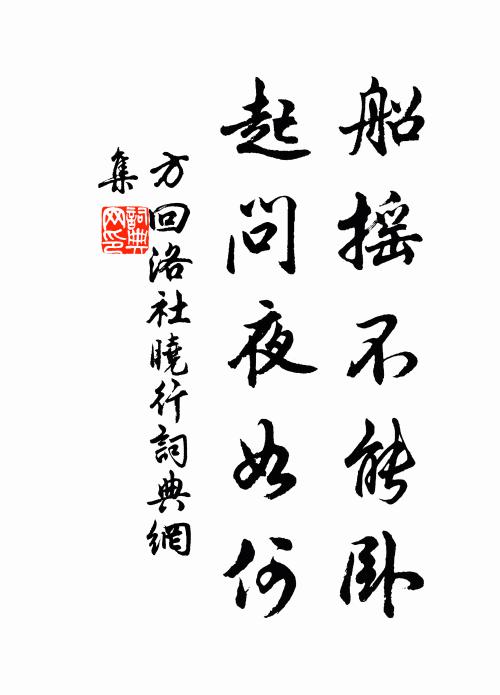 船摇不能卧
起问夜如何
方回洛社曉行詞典網
集
詞典网印